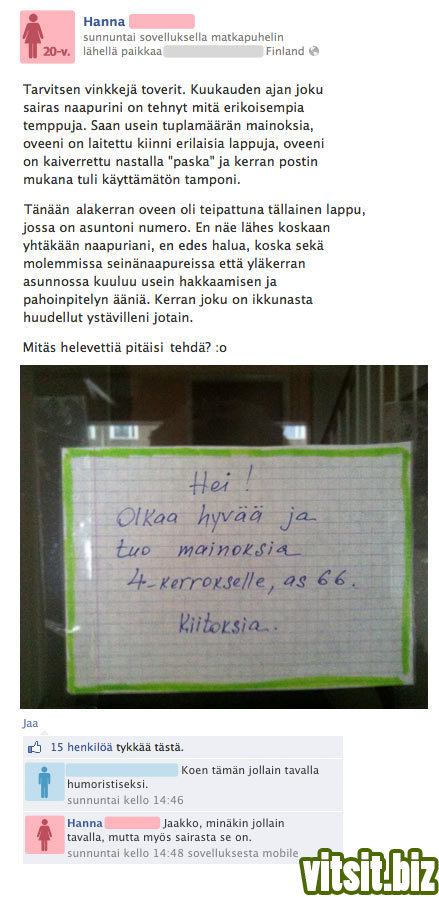 Hanna
20-v.
sunnuntai sovelluksella matkapuhelin
lähellä paikkaa Finland
Tarvitsen vinkkejä toverit. Kuukauden ajan joku
sairas naapurini on tehnyt mitä erikoisempia
temppuja. Saan usein tuplamäärän mainoksia,
oveeni on laitettu kiinni erilaisia lappuja, oveeni
on kaiverrettu nastalla "paska" ja kerran postin
mukana tuli käyttämätön tamponi.
Tänään alakerran oveen oli teipattuna tällainen lappu,
jossa on asuntoni numero. En näe lähes koskaan
yhtäkään naapuriani, en edes halua, koska sekä
molemmissa seinänaapureissa että yläkerran
asunnossa kuuluu usein hakkaamisen ja
pahoinpitelyn ääniä. Kerran joku on ikkunasta
huudellut ystävilleni jotain.
Mitäs helevettiä pitäisi tehdä? :o
Hei !
Olkaa hyvää ja
tuo mainoksia
4-kerrokselle, as 66.
Kiitoksia.
Jaa
15 henkilöä tykkää tästä.
Koen tämän jollain tavalla
humoristiseksi.
sunnuntai kello 14:46
Hanna Jaakko, minäkin jollain
tavalla, mutta myös sairasta se on.
sunnuntai kello 14:48 sovelluksesta mobile
vitsit.biz